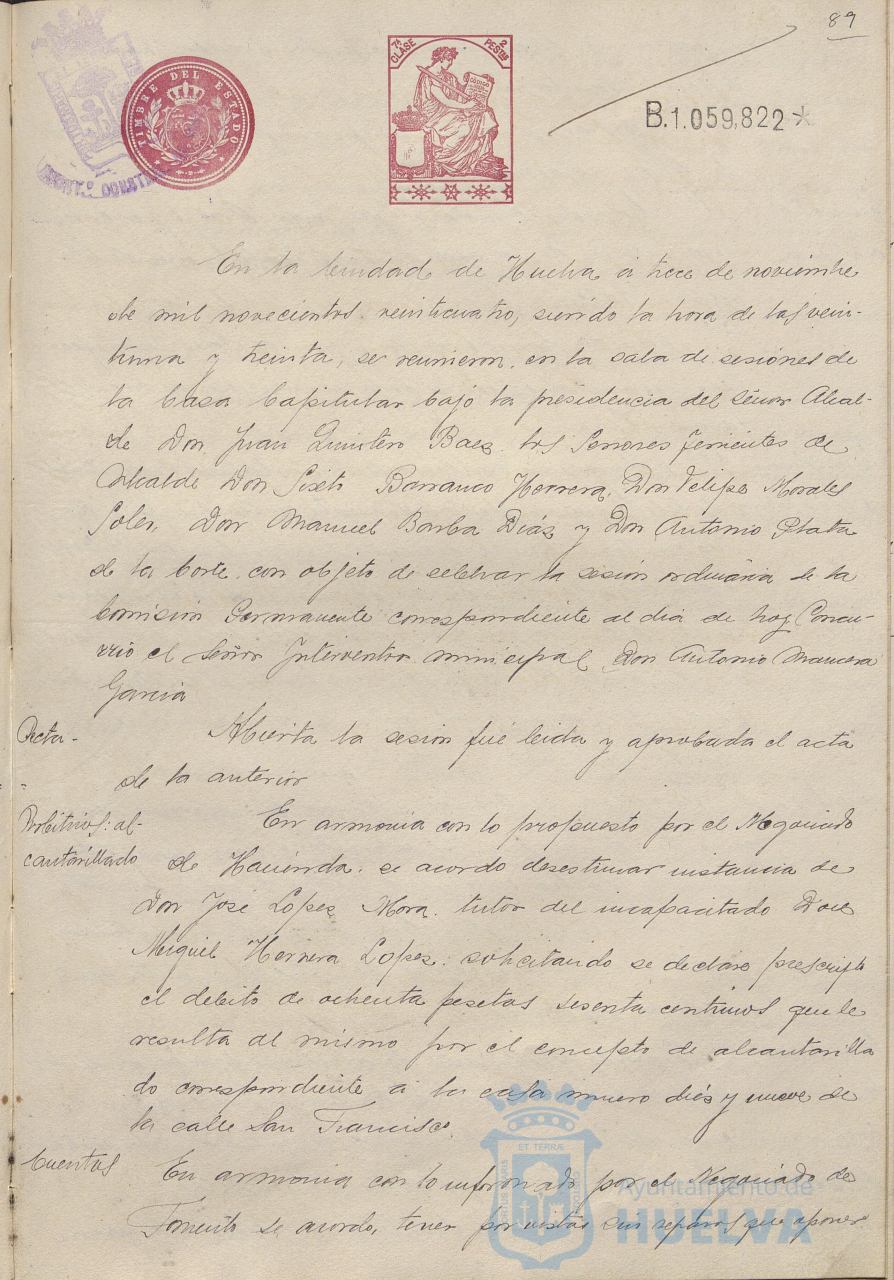 89
TIMBRE DEL ESTADO
7ª CLASE
2 PESTAS
CÓDIGO
B.1.059,822*
En la Ciudad de Huelva á trece de noviembre
de mil novecientos veinticuatro, siendo la hora de las vein-
tiuna y treinta, se reunieron en la sala de sesiones de
la Casa Capitular bajo la presidencia del Señor Alcal-
de Don Juan Quintero Baez los Señores Tenientes de
Alcalde Don Sixto Barranco Herrera, Don Felipe Morales
Soler, Don Manuel Barba Diáz y Don Antonio Plata
de la Corte, con objeto de celebrar la sesión ordinaria de la
Comisión Permanente correspondiente al dia de hoy. Concu-
rrió el Señor Interventor municipal Don Antonio Mancera
Garcia
Acta-
Abierta la sesión fué leida y aprobada el acta
de la anterior
Arbitrios: al-
cantarillado
En armonia con lo propuesto por el Negociado
de Hacienda se acordó desestimar instancia de
Don José Lopez Mora tutor del incapacitado Don
Miguel Herrera Lopez solicitando se declare prescripto
el débito de ochenta pesetas sesenta centimos que le
resulta al mismo por el concepto de alcantarilla
do correspondiente á la casa número diés y nueve de
la calle San Francisco.
Cuentas
En armonia con lo informado por el Negociado de
Fomento se acordó, tener por vistas sin reparos que oponer
Ayuntamiento de
HUELVA